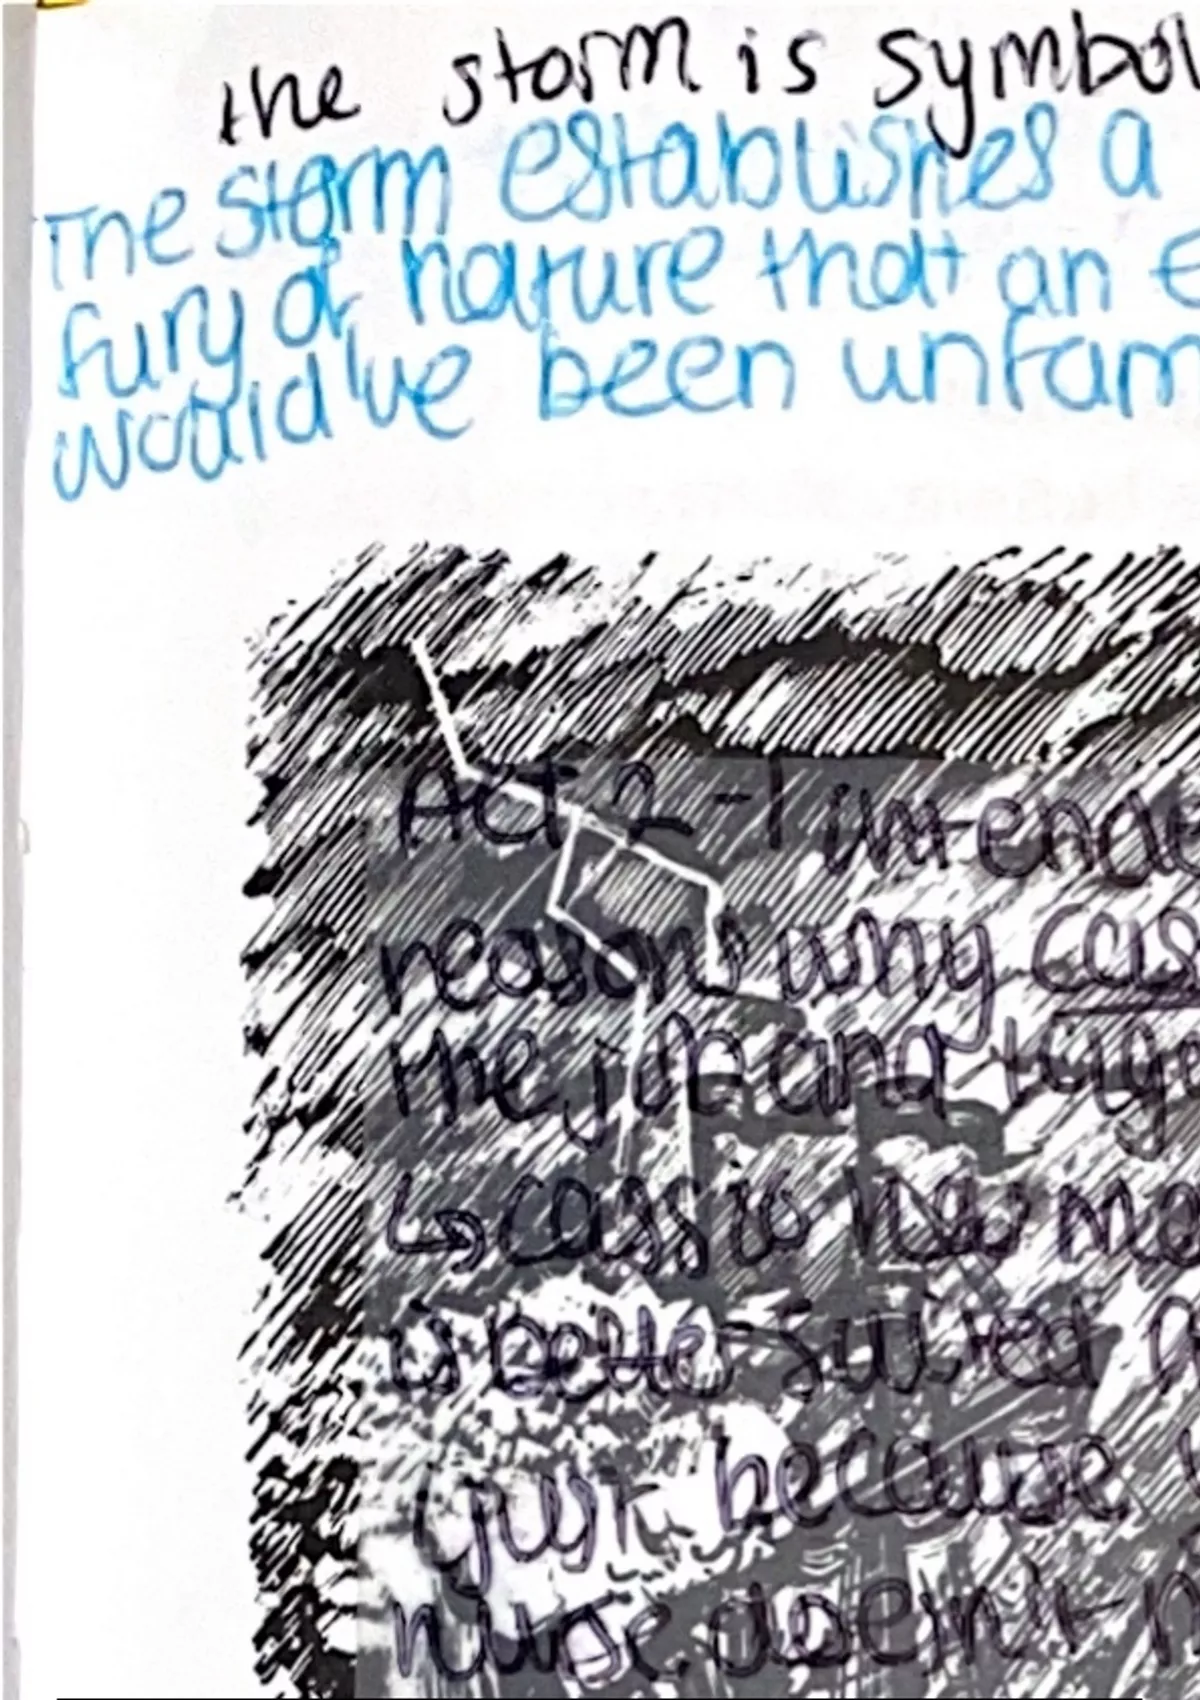 the storm is symbol
The storm establishes a
fury of nature that an E
would've been unfam
Act 2 - 1
reasons why cas
the job and
↳ cassio has mo
is better suited
just because
nurse doesn't